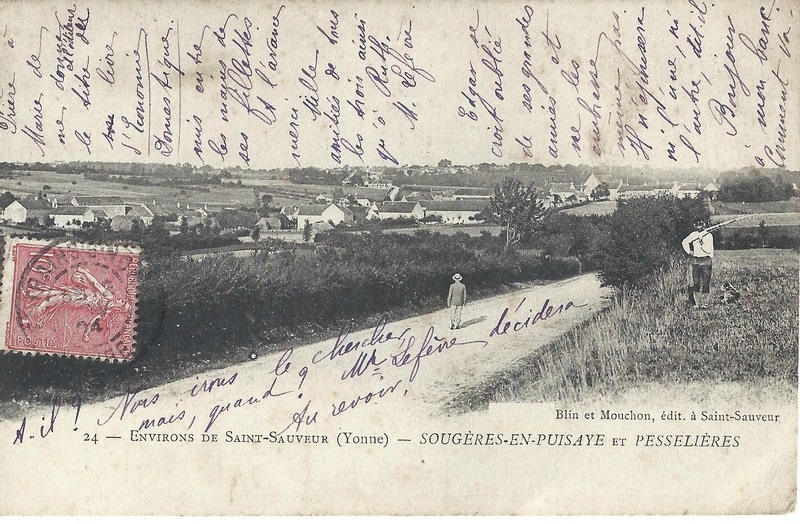 Prière à
Marie de
me donner
et l'éditeur
le titre des
livre
d'Economie
Domestique
mis entre
les mains de
ses fillettes
Et d'avance
merci
Mille
amitiés de tous
les trois ainsi
qu'à Ruth.
M. Lefèvre
Edgar se
croit oublié
de ses grandes
amies et
ne les
embrasse
même pas.
Il n'épousera
ni l'une, ni
l'autre, dit-il
Bonjour
à mon banc
Comment va-
t-il ? Nous irons le chercher
mais, quand ? Mr Lefèvre décidera
Au revoir.
POSTES
Blin et Mouchon, édit. à Saint-Sauveur
24 — ENVIRONS DE SAINT-SAUVEUR (Yonne) — SOUGÈRES-EN-PUISAYE ET PESSELIÈRES